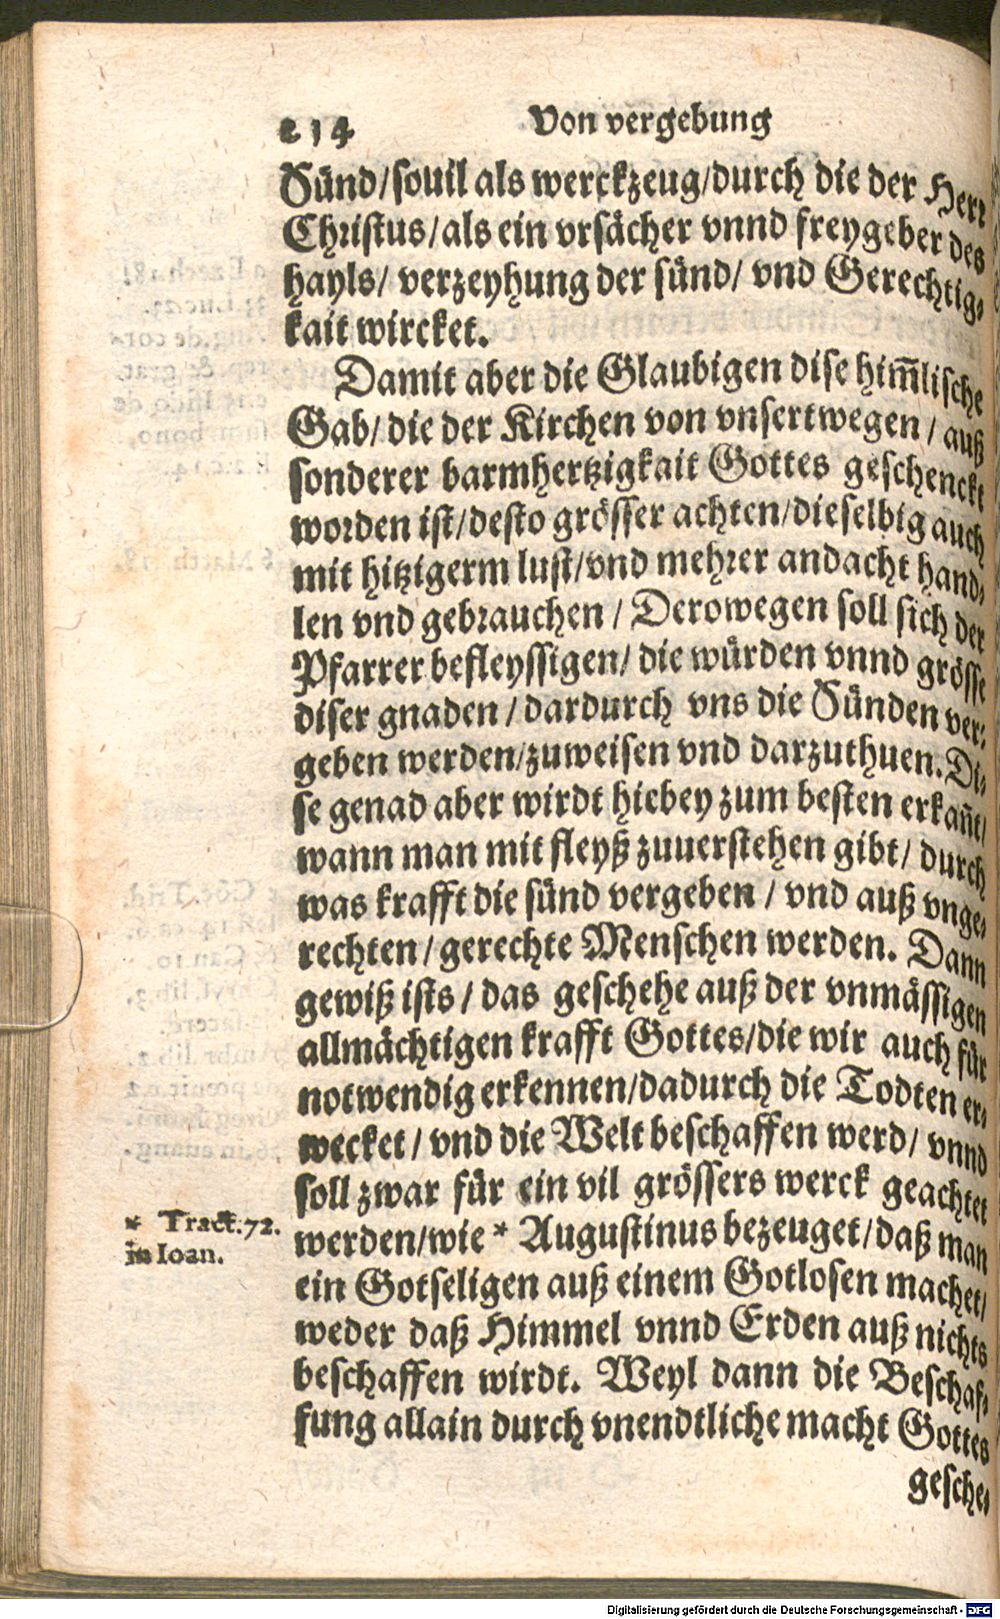 214 Von vergebung
Sünd/souil als werckzeug/durch die der Herr
Christus/als ein vrsächer vnnd freygeber des
hayls/ verzeyhung der sünd/ vnd Gerechtig-
kait wircket.
Damit aber die Glaubigen dise him̃lische
Gab/ die der Kirchen von vnsertwegen / auß
sonderer barmhertzigkait Gottes geschenckt
worden ist/desto grösser achten/dieselbig auch
mit hitzigerm lust/vnd mehrer andacht hand-
len vnd gebrauchen / Derowegen soll sich der
Pfarrer befleyssigen/ die würden vnnd grösse
diser gnaden / dardurch vns die Sünden ver-
geben werden/zuweisen vnd darzuthuen. Di-
se genad aber wirdt hiebey zum besten erkañt/
wann man mit fleyß zuuerstehen gibt/ durch
was krafft die sünd vergeben / vnd auß vnge-
rechten/gerechte Menschen werden. Dann
gewiß ists / das geschehe auß der vnmässigen
allmächtigen krafft Gottes/die wir auch für
notwendig erkennen/dadurch die Todten er-
wecket/ vnd die Welt beschaffen werd/ vnnd
soll zwar für ein vil grössers werck geachtet
* Tract.72.
in Ioan.
werden/wie * Augustinus bezeuget/daß man
ein Gotseligen auß einem Gotlosen machet/
weder daß Himmel vnnd Erden auß nichts
beschaffen wirdt. Weyl dann die Beschaf-
fung allain durch vnendtliche macht Gottes
gesche-
Digitalisierung gefördert durch die Deutsche Forschungsgemeinschaft - DFG